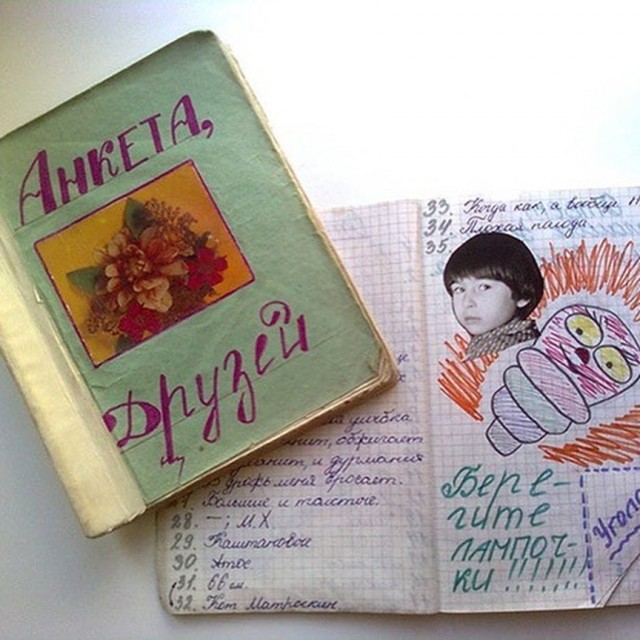 АНКЕТА,
ДРУЗЕЙ
улыбка
обжигает
и дурманит
бросает.
27. Большие и толстые.
28. — ; М.Х.
29. Каштановое
30. Атос
31. 66 см.
32. Кот Матроскин.
33. Когда как, а вообще !!!
34. Плохая погода.
35.
Бере-
гите
лампоч-
ки !!!!!!!
Уголо